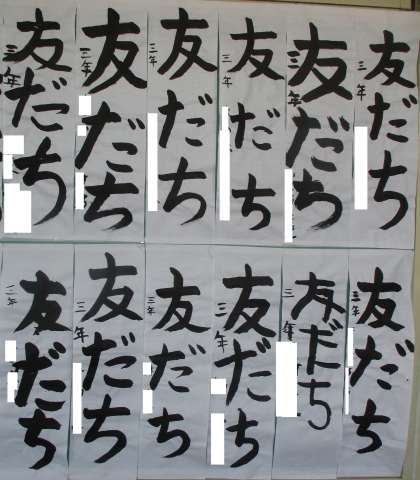 友だち
三年
友だち
三年
友だち
三年
友だち
三年
友だち
三年
友だち
三年
友だち
三年
友だち
三年
友だち
三年
友だち
三年
友だち
三年
友だち
三年